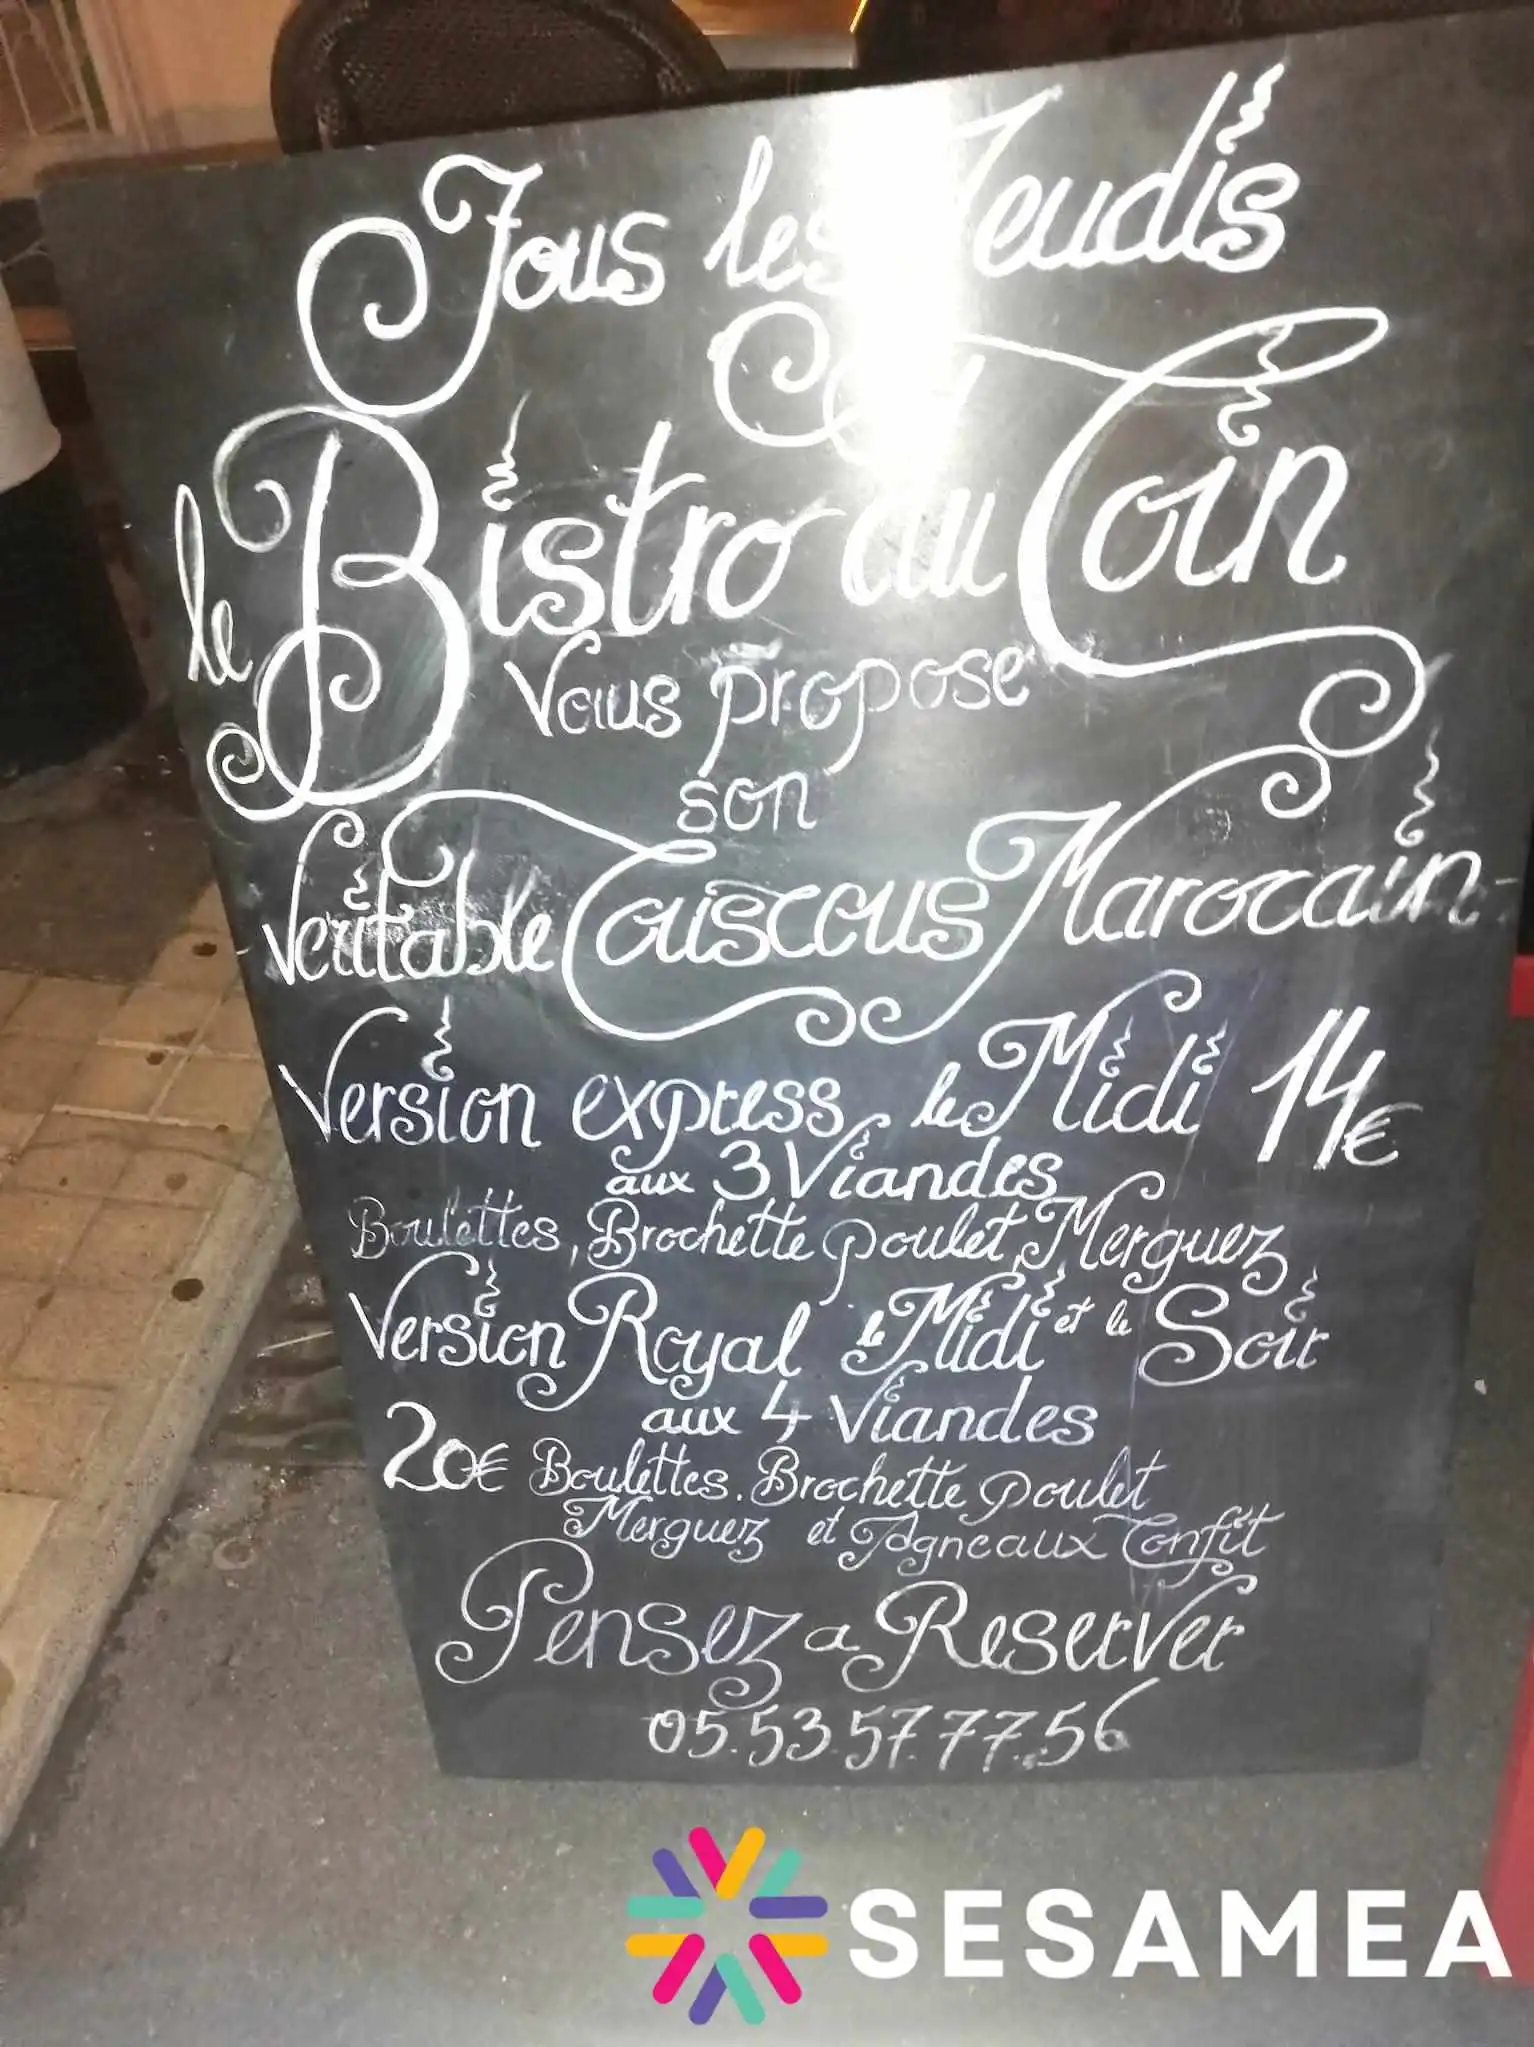 Tous les Jeudis
le Bistro du Coin
Vous propose
son
Veritable Couscous Marocain
Version express le Midi 14€
aux 3 Viandes
Boulettes, Brochette Poulet, Merguez
Version Royal le Midi et le Soir
aux 4 Viandes
20€ Boulettes. Brochette Poulet
Merguez et Agneaux Confit
Pensez a Reserver
05.53.57.77.56
SESAMEA